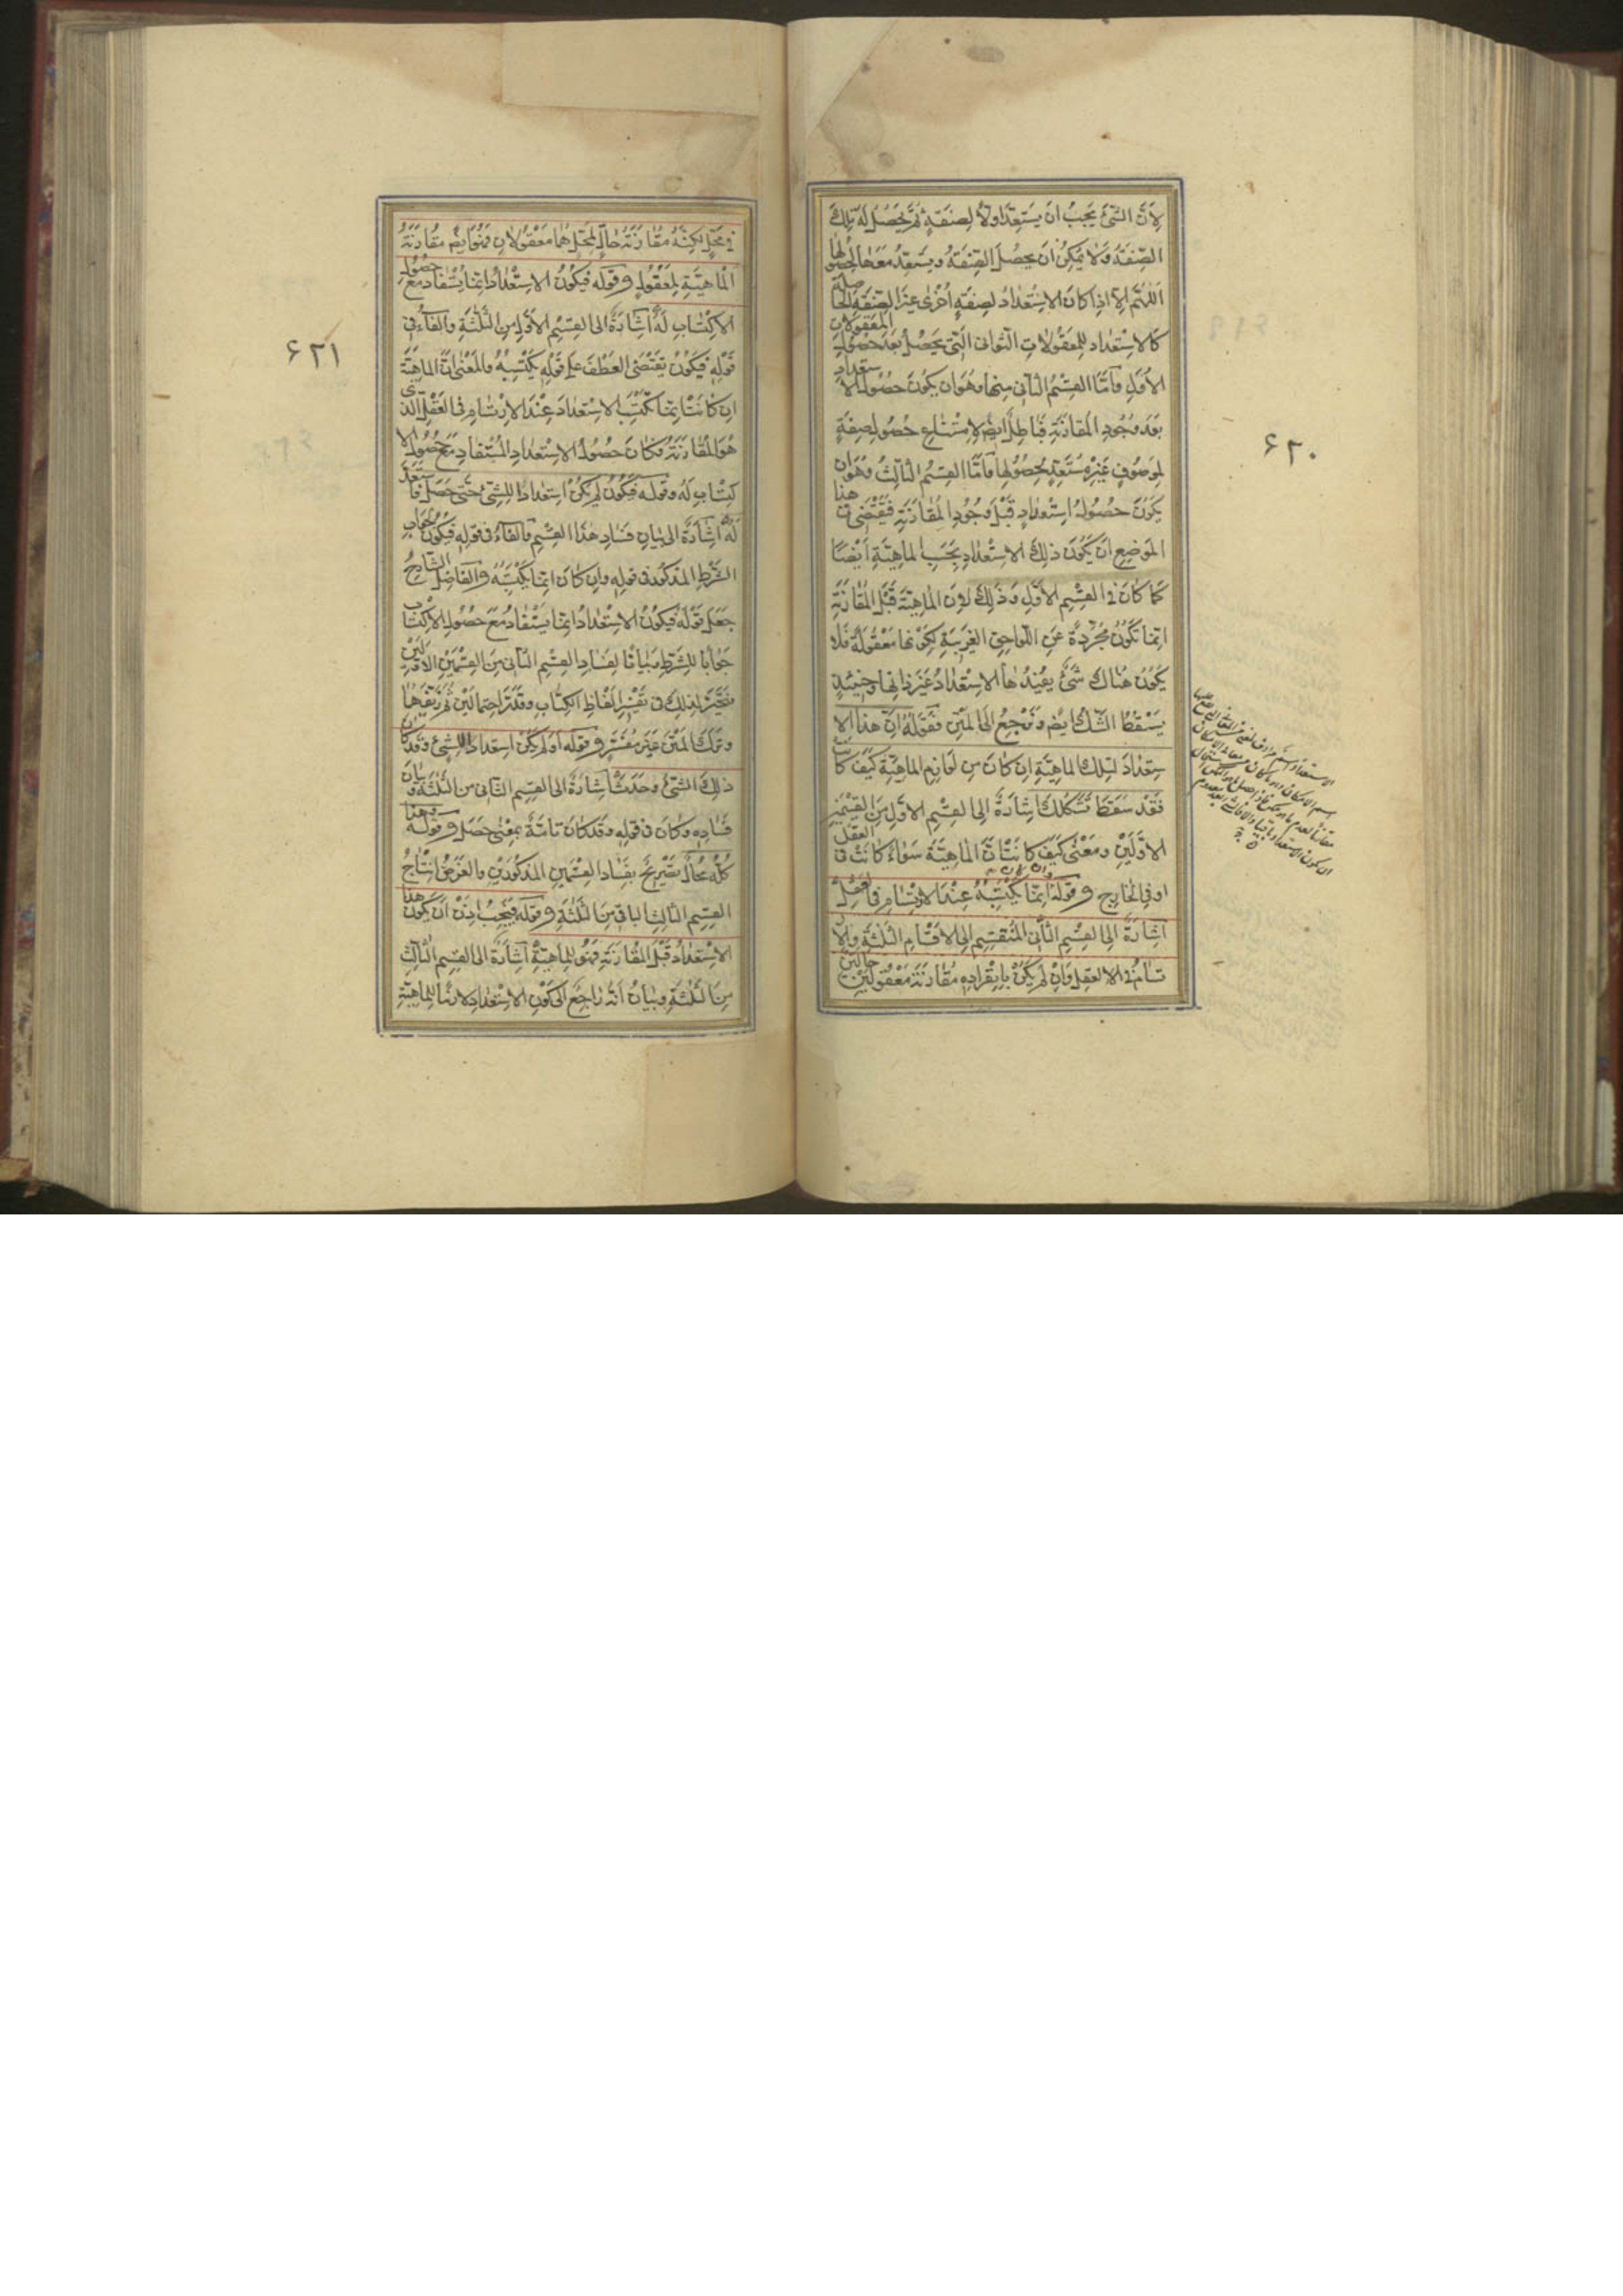 لِأَنَّ الشَّئَ يَجِبُ أَنْ يَسْتَعِدَّ أَوَّلاً لِصِفَةٍ ثُمَّ يَحْصُلُ لَهُ تِلْكَ
الصِّفَةُ وَلَا يُمْكِنُ أَنْ يَحْصُلَ الصِّفَةُ وَيَسْتَعِدُّ مَعَهَا لِحُصُولِهَا
اَللّهُمَّ إِلَّا إِذَا كَانَ الاِسْتِعْدَادُ لِصِفَةٍ أُخْرَى غَيْرِ الصِّفَةِ الْحَاصِلَةِ
كَالاِسْتِعْدَادِ لِلْمَعْقُولَاتِ الثَّوَانِى الَّتِى يَحْصُلُ بَعْدَ حُصُولِ الْمَعْقُولَاتِ
الأُوَلِ وَأَمَّا الْقِسْمُ الثَّانِى مِنْهَا وَهُوَ أَنْ يَكُونَ حُصُولُ الاِسْتِعْدَادِ
بَعْدَ وُجُودِ الْمُقَارَنَةِ فَبَاطِلٌ أَيْضًا لِامْتِنَاعِ حُصُولِ صِفَةٍ
لِمَوْصُوفٍ غَيْرِ مُسْتَعِدٍّ لِحُصُولِهَا وَأَمَّا الْقِسْمُ الثَّالِثُ وَهُوَ أَنْ
يَكُونَ حُصُولُ اسْتِعْدَادٍ قَبْلَ وُجُودِ الْمُقَارَنَةِ فَيَقْتَضِى فِى هذَا
الْمَوْضِعِ أَنْ يَكُونَ ذلِكَ الاِسْتِعْدَادُ بِحَسَبِ الْمَاهِيَّةِ أَيْضًا
كَمَا كَانَ فِى الْقِسْمِ الأَوَّلِ وَذلِكَ لِأَنَّ الْمَاهِيَّةَ قَبْلَ الْمُقَارَنَةِ
إِنَّمَا تَكُونُ مُجَرَّدَةً عَنِ اللَّوَاحِقِ الْغَرِيبَةِ لِكَوْنِهَا مَعْقُولَةً فَلَا
يَكُونُ هُنَاكَ شَئٌ يُفِيدُهَا الاِسْتِعْدَادَ غَيْرَ ذَاتِهَا وَحِينَئِذٍ
يَسْقُطُ الشَّكُّ أَيْضًا وَنَرْجِعُ إِلَى الْمَتْنِ فَقَوْلُهُ إِنَّ هذَا الا
سْتِعْدَادَ لِتِلْكَ الْمَاهِيَّةِ إِنْ كَانَ مِنْ لَوَازِمِ الْمَاهِيَّةِ كَيْفَ كَانَتْ
فَقَدْ سَقَطَ تَشَكُّكُكَ إِشَارَةٌ إِلَى الْقِسْمِ الأَوَّلِ مِنَ الْقِسْمَيْنِ
الأَوَّلَيْنِ وَمَعْنَى كَيْفَ كَانَتْ أَنَّ الْمَاهِيَّةَ سَوَاءٌ كَانَتْ فِى الْعَقْلِ
أَوْ فِى الْخَارِجِ وَقَوْلُهُ وان كان إِنَّمَا يَكْتَسِبُهُ عِنْدَ الاِرْتِسَامِ فِى الْعَقْلِ
إِشَارَةٌ إِلَى الْقِسْمِ الثَّانِى الْمُنْقَسِمِ إِلَى الأَقْسَامِ الثَّلثَةِ وَالار
تِسَامُ فِى الْعَقْلِ وَإِنْ لَمْ يَكُنْ بِانْفِرَادِهِ مُقَارَنَةَ مَعْقُولَيْنِ حَالَّيْنِ
۶۲۰
فِى مَحَلٍّ لكِنَّهُ مُقَارَنَةُ حَالٍّ لِمَحَلٍّ هُمَا مَعْقُولَانِ فَهُوَ أَيْضًا مُقَارَنَةُ
الْمَاهِيَّةِ لِمَعْقُولٍ وَقَوْلُهُ فَيَكُونُ الاِسْتِعْدَادُ إِنَّمَا يُسْتَفَادُ مَعَ حُصُولِ
الاِكْتِسَابِ لَهُ إِشَارَةٌ إِلَى الْقِسْمِ الأَوَّلِ مِنَ الثَّلثَةِ وَالْفَاءُ فِى
قَوْلِهِ فَيَكُونُ يَقْتَضِى الْعَطْفَ عَلَى قَوْلِهِ يَكْتَسِبُهُ وَالْمَعْنَى أَنَّ الْمَاهِيَّةَ
إِنْ كَانَتْ إِنَّمَا تَكْتَسِبُ الاِسْتِعْدَادَ عِنْدَ الاِرْتِسَامِ فِى الْعَقْلِ الَّذِى
هُوَ الْمُقَارَنَةُ فَكَانَ حُصُولُ الاِسْتِعْدَادِ الْمُسْتَفَادِ مَعَ حُصُولِ الا
كْتِسَابِ لَهُ وَقَوْلُهُ فَيَكُونُ لَمْ يَكُنْ اسْتِعْدَادٌ لِلشَّئِ حَتَّى حَصَلَ فَاسْتَعَدَّ
لَهُ إِشَارَةٌ إِلَى بَيَانِ فَسَادِ هذَا الْقِسْمِ وَالْفَاءُ فِى قَوْلِهِ فَيَكُونُ لِجَوَابِ
الشَّرْطِ الْمَذْكُورِ فِى قَوْلِهِ وَإِنْ كَانَ إِنَّمَا يَكْتَسِبُهُ وَالْفَاضِلُ الشَّارِحُ
جَعَلَ قَوْلَهُ فَيَكُونُ الاِسْتِعْدَادُ إِنَّمَا يُسْتَفَادُ مَعَ حُصُولِ الاِكْتِسَابِ
جَوَابًا لِلشَّرْطِ وَبَيَانًا لِفَسَادِ الْقِسْمِ الثَّانِى مِنَ الْقِسْمَيْنِ الأَوَّلَيْنِ
فَتَحَيَّرَ لِذلِكَ فِى تَفْسِيرِ أَلْفَاظِ الْكِتَابِ وَقَدَّرَ احْتِمَالَيْنِ ثُمَّ زَيَّفَهُمَا
وَتَرَكَ الْمَتْنَ غَيْرَ مُفَسَّرٍ وَقَوْلُهُ أَوْ لَمْ يَكُنْ اسْتِعْدَادٌ لِلشَّئِ وَقَدْ كَانَ
ذلِكَ الشَّئُ وَحَدَثَ إِشَارَةٌ إِلَى الْقِسْمِ الثَّانِى مِنَ الثَّلثَةِ وَبَيَانِ
فَسَادِهِ وَكَانَ فِى قَوْلِهِ وَقَدْ كَانَ تَامَّةٌ بِمَعْنَى حَصَلَ وَقَوْلُهُ وَهذَا
كُلُّهُ مُحَالٌ تَصْرِيحٌ بِفَسَادِ الْقِسْمَيْنِ الْمَذْكُورَيْنِ وَالْغَرَضُ إِنْتَاجُ
الْقِسْمِ الثَّالِثِ الْبَاقِى مِنَ الثَّلثَةِ وَقَوْلُهُ فَيَجِبُ إِذَنْ أَنْ يَكُونَ هذَا
الاِسْتِعْدَادُ قَبْلَ الْمُقَارَنَةِ فَهُوَ لِلْمَاهِيَّةِ إِشَارَةٌ إِلَى الْقِسْمِ الثَّالِثِ
مِنَ الثَّلثَةِ وَبَيَانُ أَنَّهُ رَاجِعٌ إِلَى كَوْنِ الاِسْتِعْدَادِ لَازِمًا لِلْمَاهِيَّةِ
۶۲۱